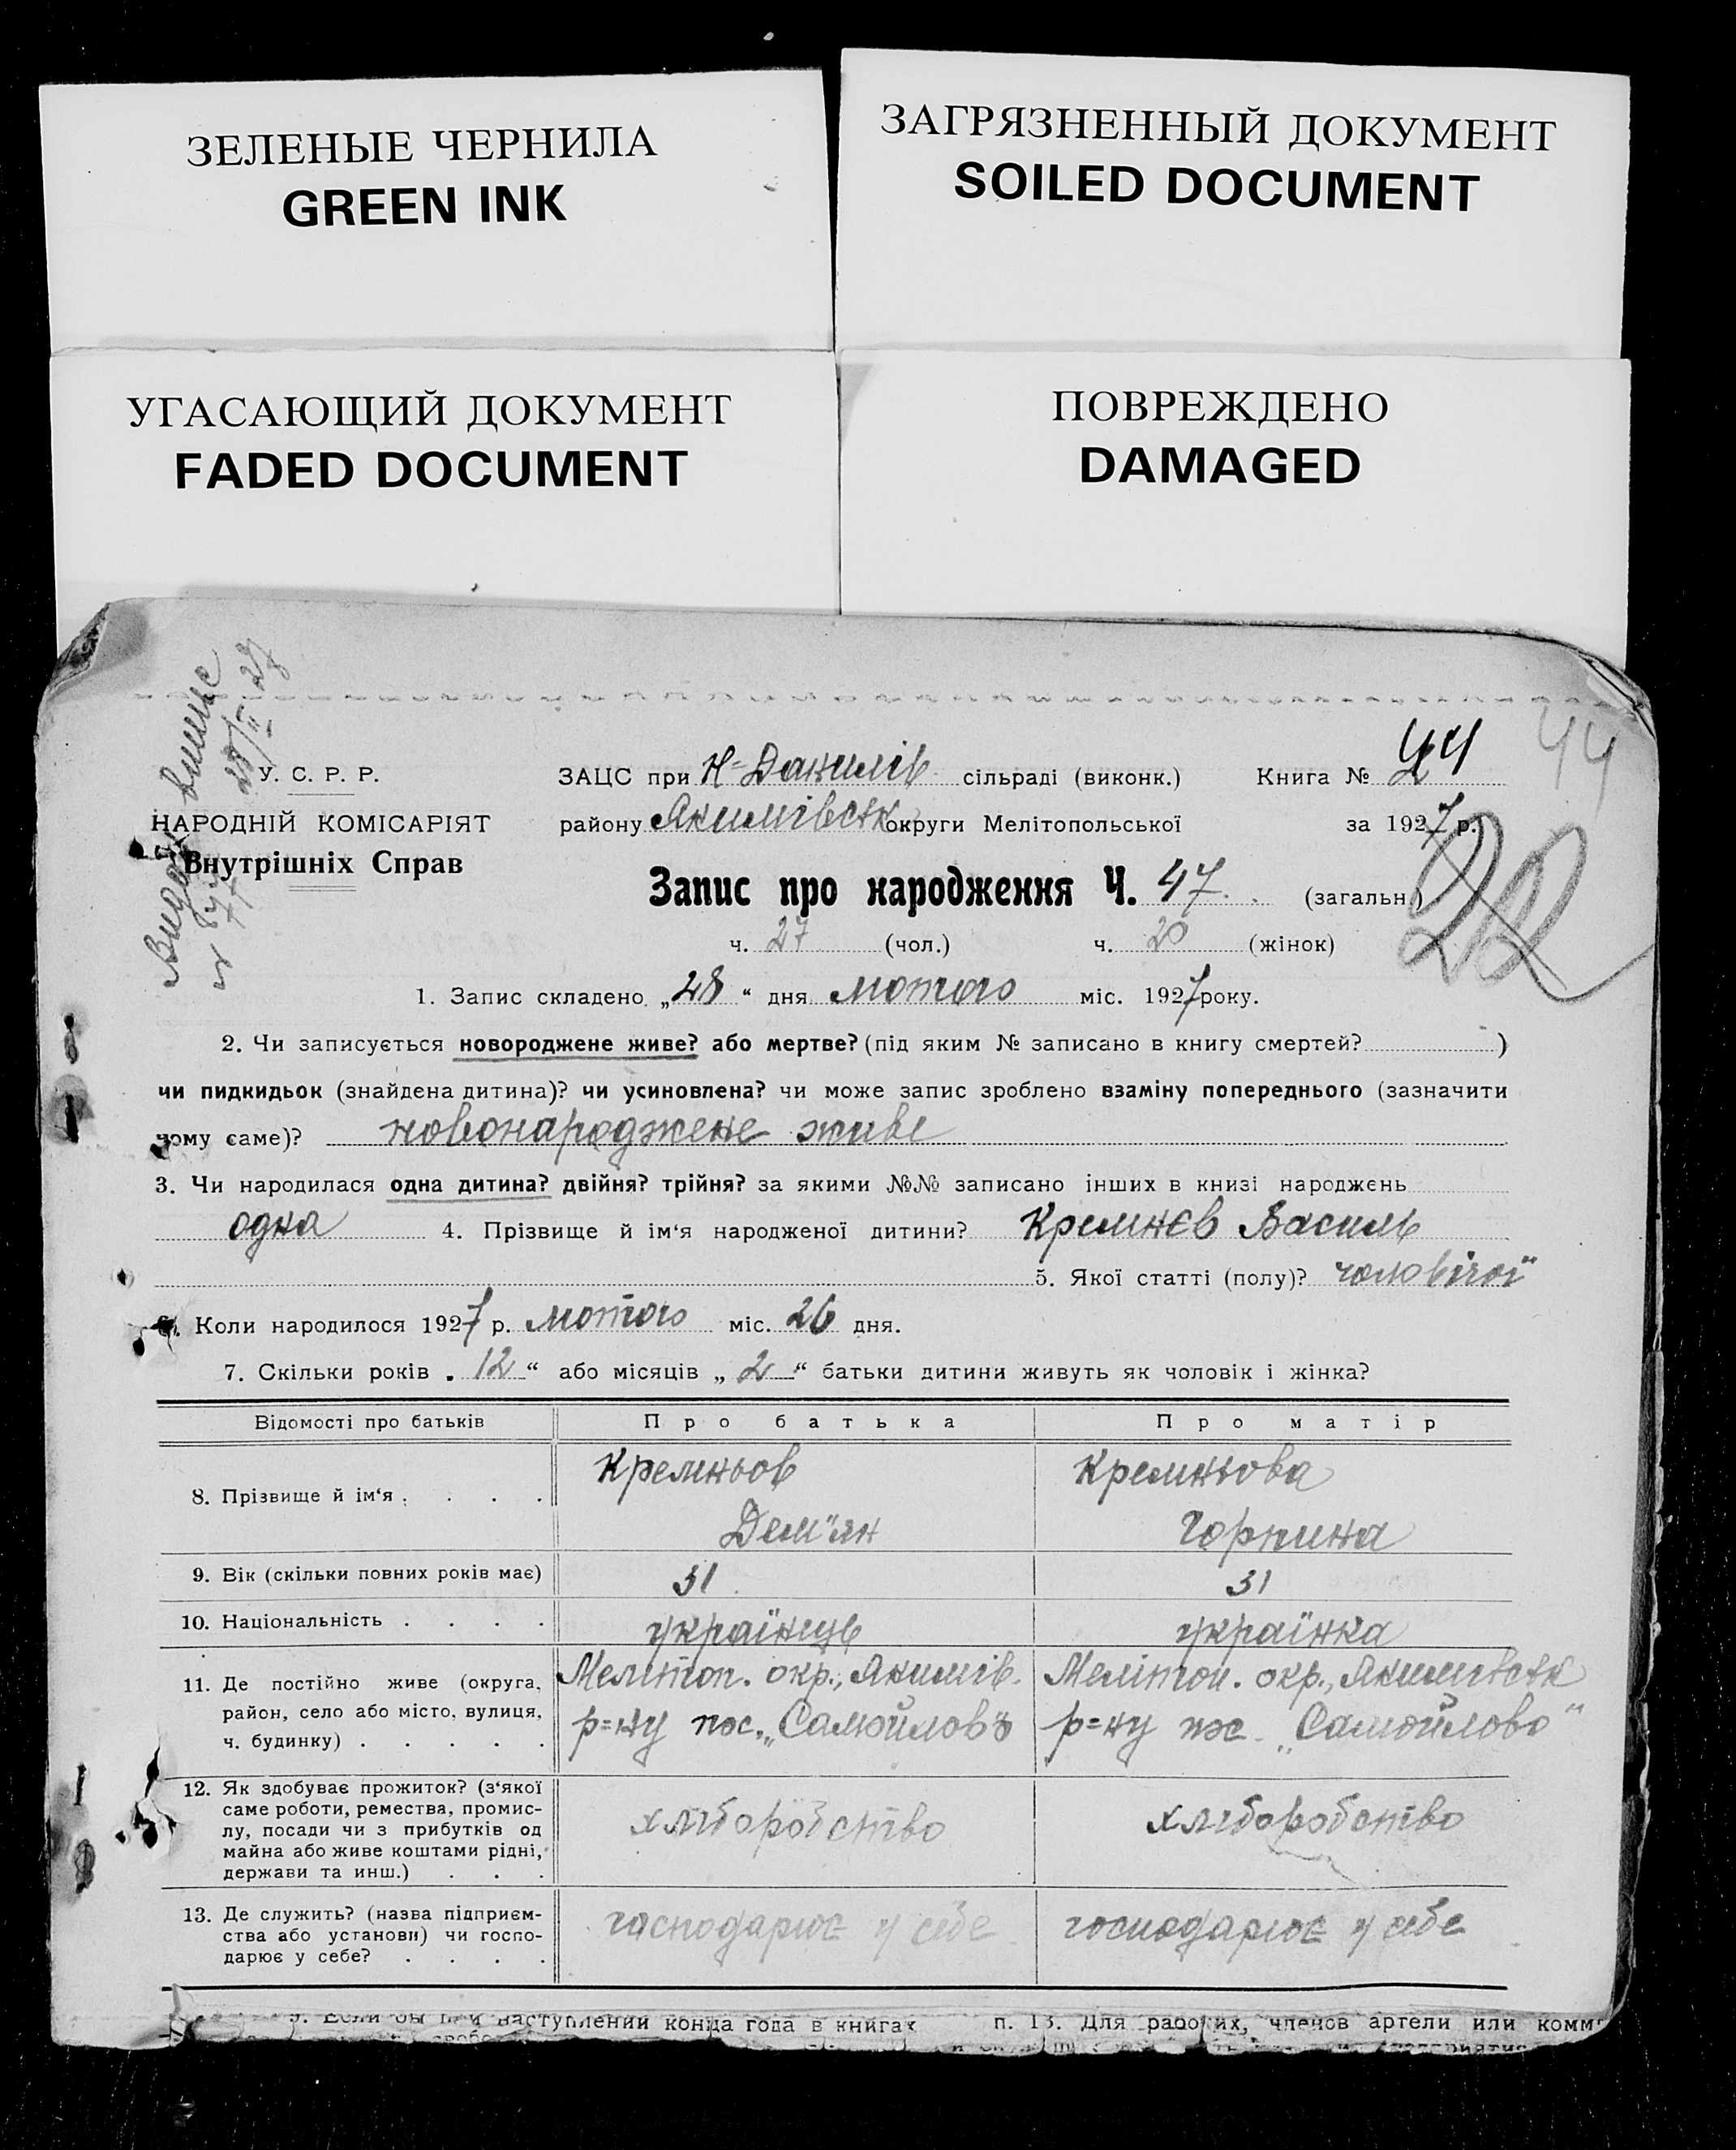 ЗЕЛЕНЫЕ ЧЕРНИЛА
GREEN INK
ЗАГРЯЗНЕННЫЙ ДОКУМЕНТ
SOILED DOCUMENT
УГАСАЮЩИЙ ДОКУМЕНТ
FADED DOCUMENT
ПОВРЕЖДЕНО
DAMAGED
44
У. С. Р. Р.
НАРОДНІЙ КОМІСАРІЯТ
Внутрішніх Справ
ЗАЦС при Н-Данилів сільраді (виконк.) Книга №
району Якимівськ округи Мелітопольської за 1927 р.
Запис про народження Ч. 47 (загальн.)
ч. 27 (чол.) ч. 20 (жінок)
1. Запис складено „28“ дня лютого міс. 1927 року.
2. Чи записується новороджене живе? або мертве? (під яким № записано в книгу смертей? )
чи пидкидьок (знайдена дитина)? чи усиновлена? чи може запис зроблено взаміну попереднього (зазначити
чому саме)? новонароджене живе
3. Чи народилася одна дитина? двійня? трійня? за якими №№ записано інших в книзі народжень
одна 4. Прізвище й ім‘я народженої дитини? Кремнєв Василь
5. Якої статті (полу)? чоловічої
6. Коли народилося 1927 р. лютого міс. 26 дня.
7. Скільки років „12“ або місяців „2“ батьки дитини живуть як чоловік і жінка?
Відомості про батьків Про батька Про матір
8. Прізвище й ім‘я . . . . Кремньов Кремньова
Дем"ян Горпина
9. Вік (скільки повних років має) 31 31
10. Національність . . . . українець українка
11. Де постійно живе (округа, Мелітоп. окр., Якимів. Мелітоп. окр., Якимівськ
район, село або місто, вулиця, р=ну пос. „Самойлово р=ну пос. „Самойлово"
ч. будинку) . . . . .
12. Як здобуває прожиток? (з‘якої
саме роботи, ремества, промис-
лу, посади чи з прибутків од хліборобство хліборобство
майна або живе коштами рідні,
держави та инш.) . . .
13. Де служить? (назва підприєм-
ства або установи) чи госпо- господарює у себе господарює у себе
дарює у себе? . . . .
наступлении конца года в книгах п. 13. Для рабочих, членов артели или